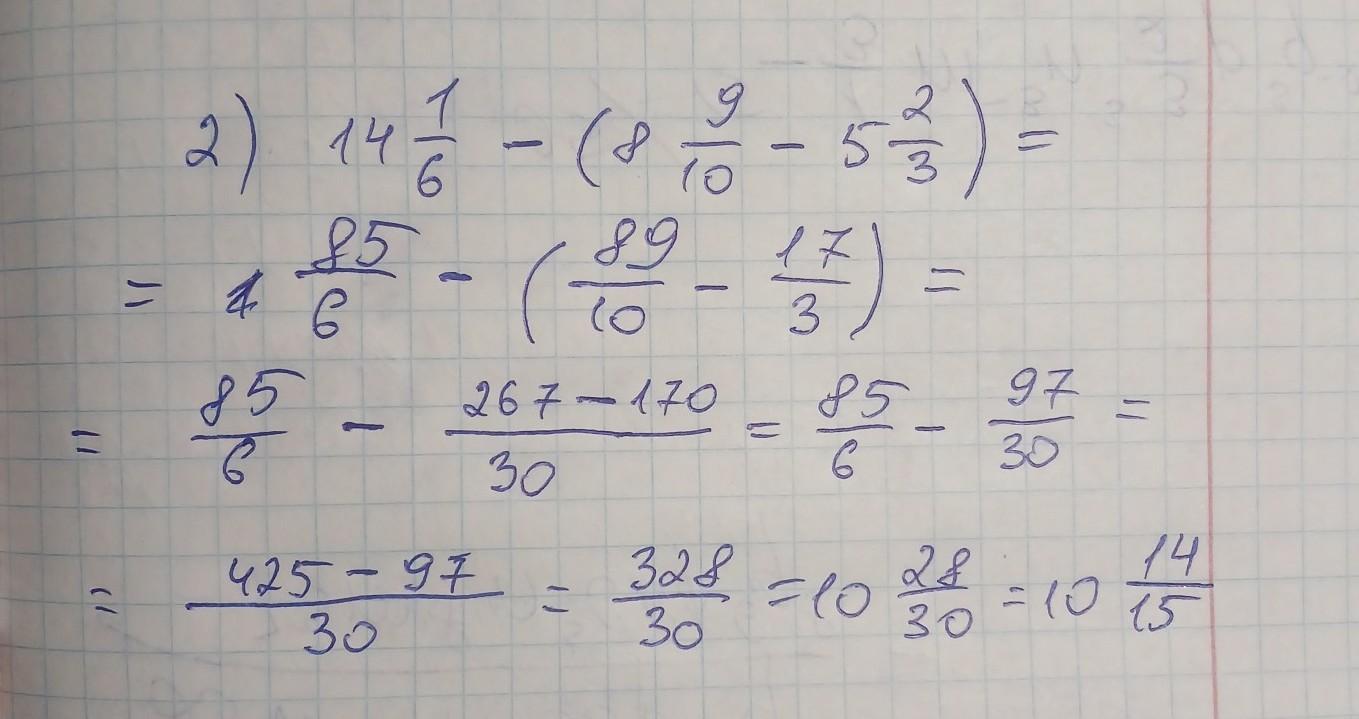 2) 14 1/6 - (8 9/10 - 5 2/3) =
= 85/6 - (89/10 - 17/3) =
= 85/6 - (267-170)/30 = 85/6 - 97/30 =
= (425-97)/30 = 328/30 = 10 28/30 = 10 14/15